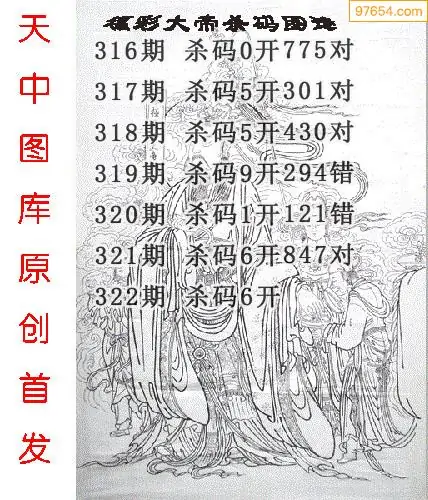 97654.com
福彩大帝杀码图迷
316期 杀码0开775对
317期 杀码5开301对
318期 杀码5开430对
319期 杀码9开294错
320期 杀码1开121错
321期 杀码6开847对
322期 杀码6开
天中图库原创首发